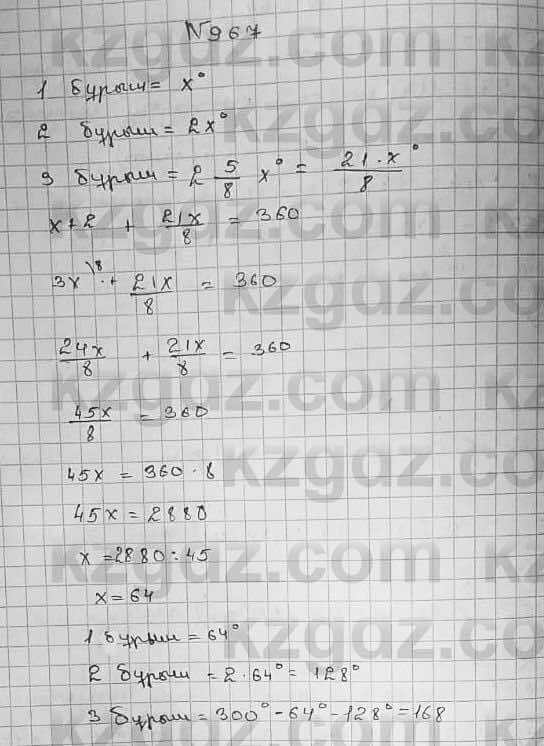 №967
1 бұрыш = x°
2 бұрыш = 2x°
3 бұрыш = 2 5/8 x° = 21·x°/8
x+2 + 21x/8 = 360
3x\8 + 21x/8 = 360
24x/8 + 21x/8 = 360
45x/8 = 360
45x = 360 · 8
45x = 2880
x = 2880 : 45
x = 64
1 бұрыш = 64°
2 бұрыш = 2·64° = 128°
3 бұрыш = 300° - 64° - 128° = 168
kzgdz.com